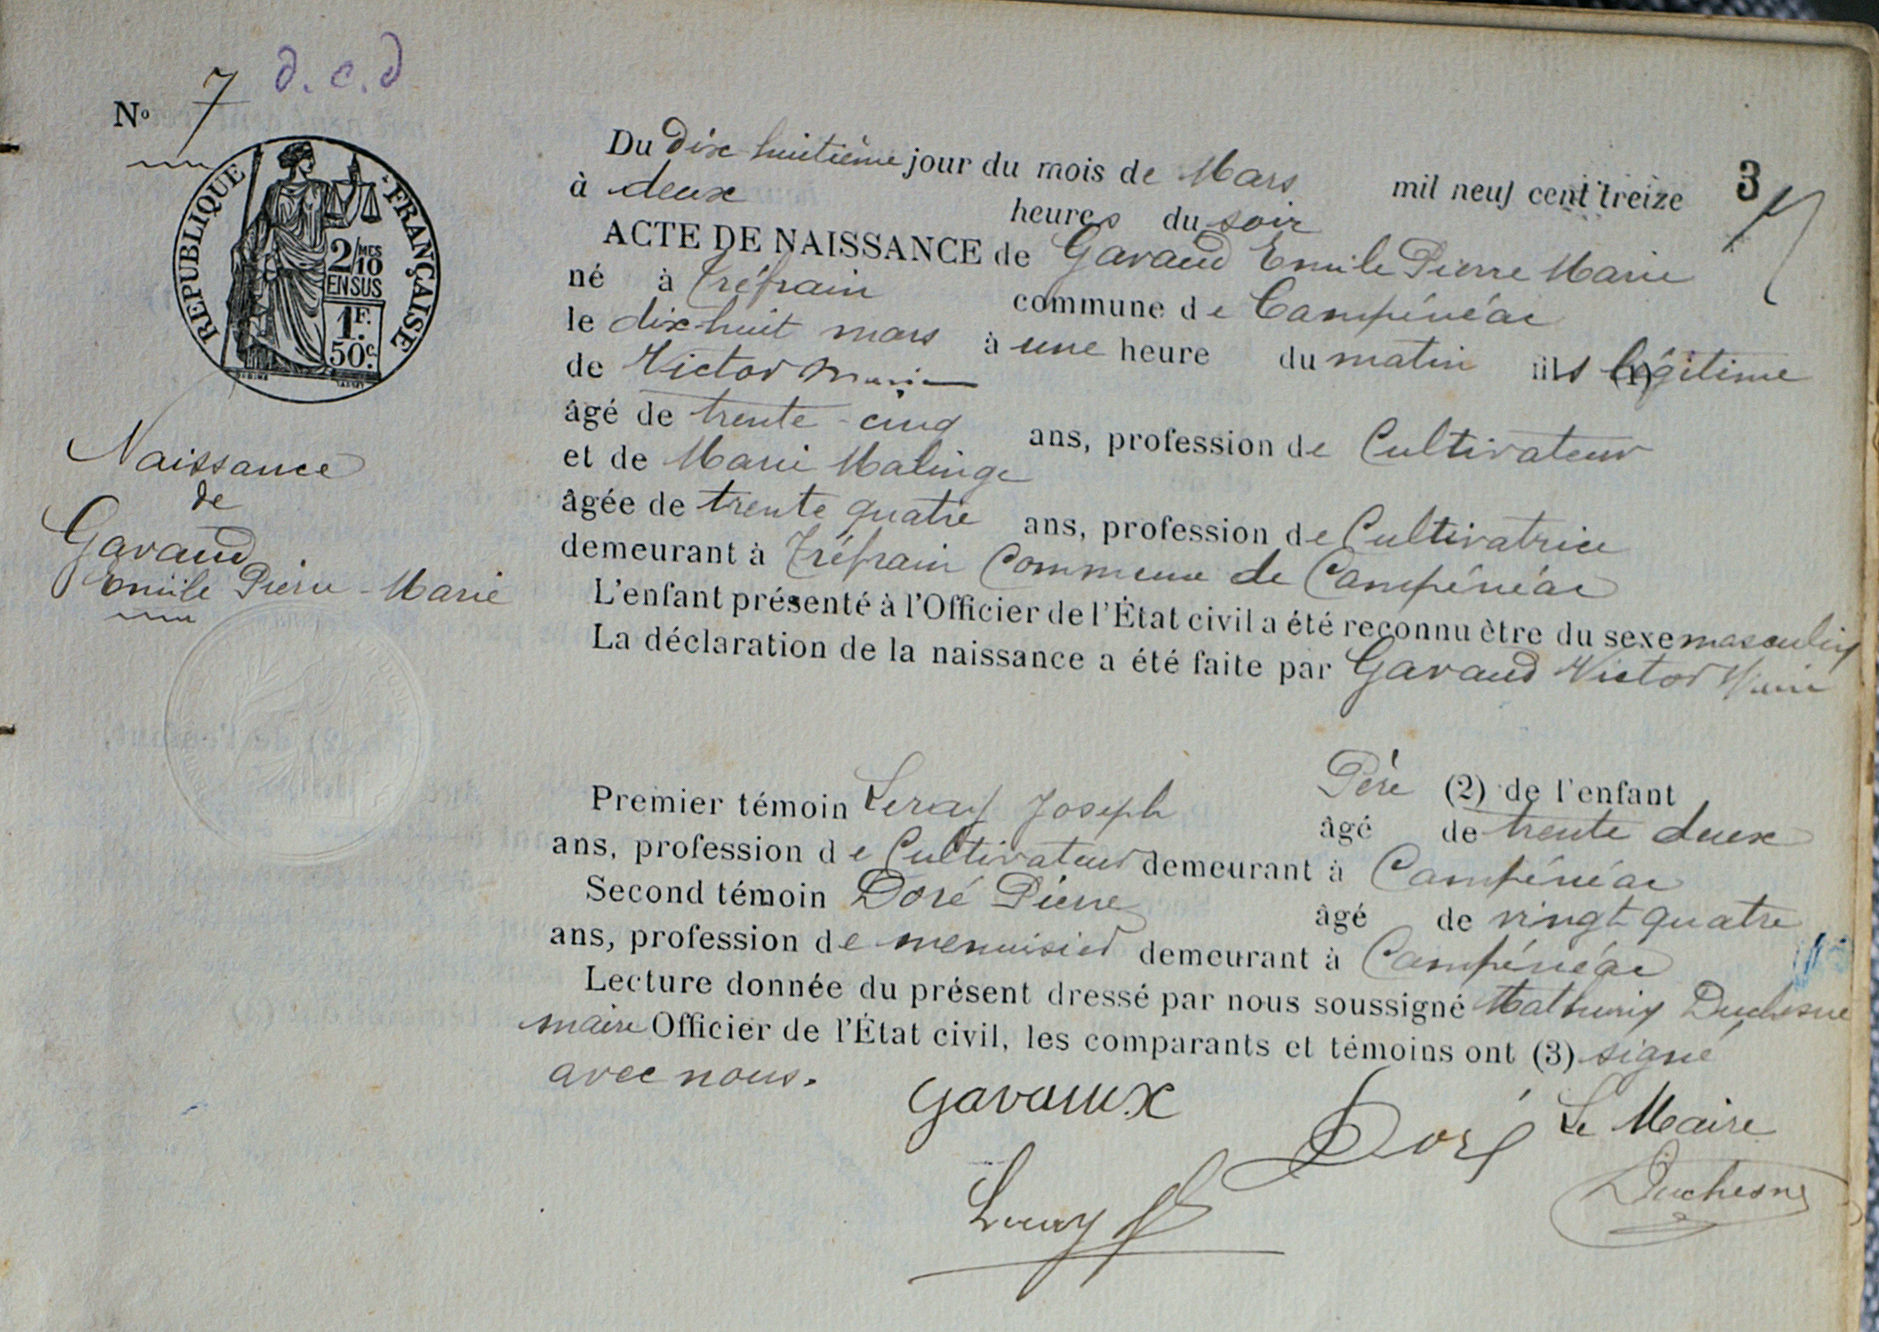 N° 7 d.c.d
RÉPUBLIQUE FRANÇAISE
2/10 MES
EN SUS
1F.
50c.
Naissance
de
Gavaud
Emile Pierre-Marie
3
Du dix huitième jour du mois de Mars mil neuf cent treize
à deux heures du soir
ACTE DE NAISSANCE de Gavaud Emile Pierre Marie
né à Tréfrain commune de Campénéac
le dix-huit mars à une heure du matin fils (1) légitime
de Victor Marie
âgé de trente-cinq ans, profession de Cultivateur
et de Marie Malinge
âgée de trente quatre ans, profession de Cultivatrice
demeurant à Tréfrain Commune de Campénéac
L'enfant présenté à l'Officier de l'État civil a été reconnu être du sexe masculin
La déclaration de la naissance a été faite par Gavaud Victor Marie
Père (2) de l'enfant
Premier témoin Leray Joseph âgé de trente deux
ans, profession de Cultivateur demeurant à Campénéac
Second témoin Doré Pierre âgé de vingt quatre
ans, profession de menuisier demeurant à Campénéac
Lecture donnée du présent dressé par nous soussigné Mathurin Duchesne
maire Officier de l'État civil, les comparants et témoins ont (3) signé
avec nous.
Gavaux
Doré
Le Maire
Leray
Duchesne